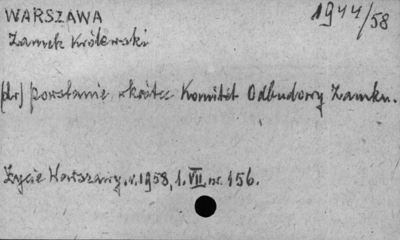 WARSZAWA 1944/58
Zamek Królewski
(dr) powstanie wkrótce Komitet Odbudowy Zamku.
Życie Warszawy, r. 1958, 1. VII. nr. 156.